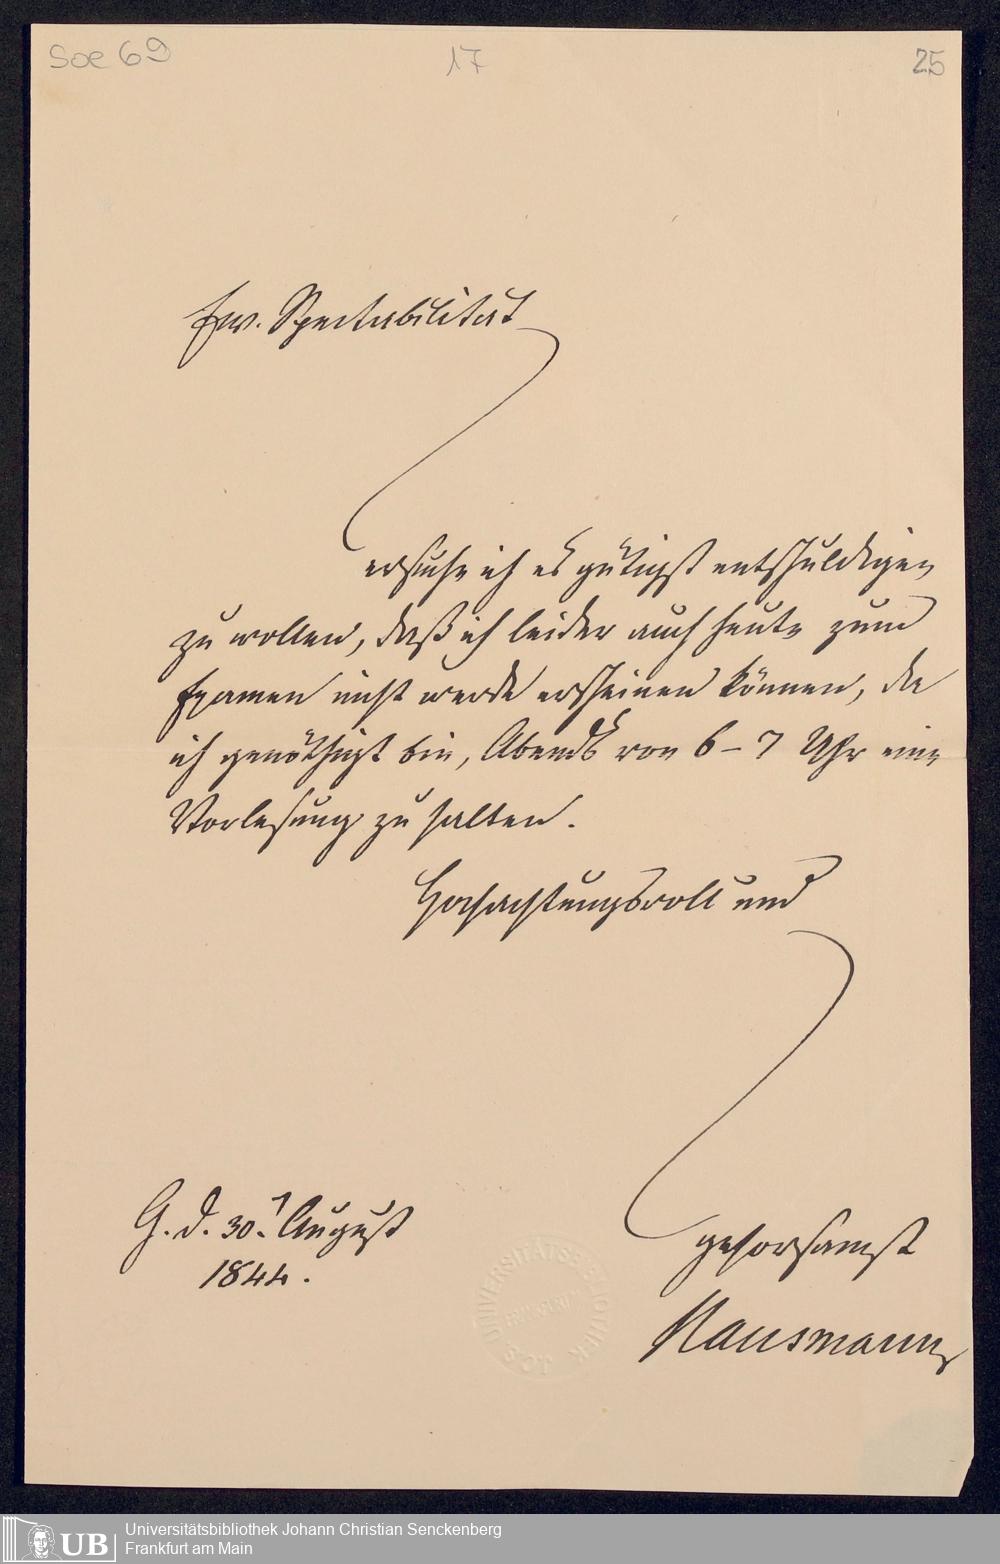 Soe 69 17 25
Ew. Spectabilität
ersuche ich es gütigst entschuldigen
zu wollen, daß ich leider auch heute zum
Examen nicht werde erscheinen können, da
ich genöthigt bin, Abends von 6–7 Uhr eine
Vorlesung zu halten.
Hochachtungsvoll und
G. d. 30. August
1844.
gehorsamst
Hausmann
UNIVERSITÄTSBIBLIOTHEK J.C.S.
UB
Universitätsbibliothek Johann Christian Senckenberg
Frankfurt am Main